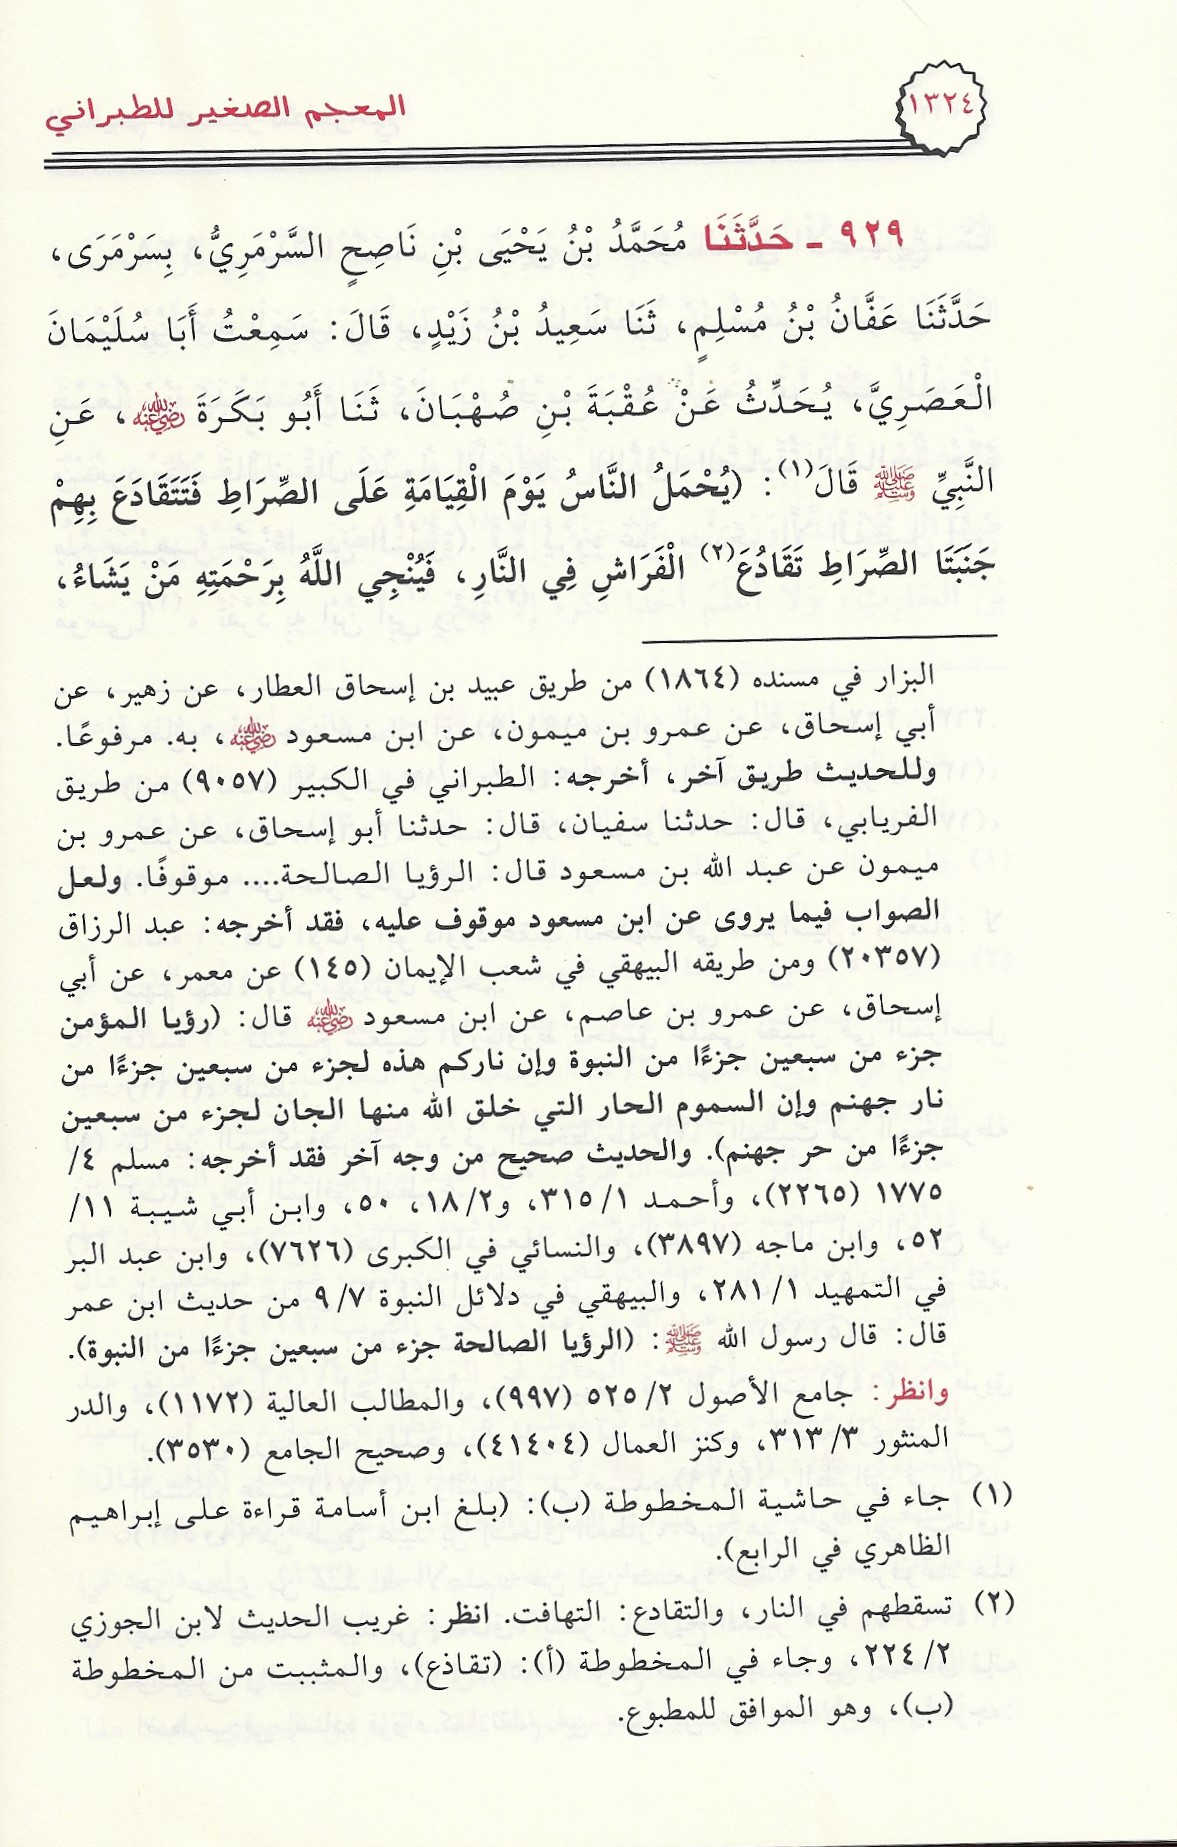 ١٣٢٤
المعجم الصغير للطبراني
٩٢٩ - حَدَّثَنَا مُحَمَّدُ بْنُ يَحْيَى بْنِ نَاصِحٍ السَّرْمَرِيُّ، بِسَرْمَرَى،
حَدَّثَنَا عَفَّانُ بْنُ مُسْلِمٍ، ثَنَا سَعِيدُ بْنُ زَيْدٍ، قَالَ: سَمِعْتُ أَبَا سُلَيْمَانَ
الْعَصَرِيَّ، يُحَدِّثُ عَنْ عُقْبَةَ بْنِ صُهْبَانَ، ثَنَا أَبُو بَكَرَةَ رضي الله عنه، عَنِ
النَّبِيِّ ﷺ قَالَ(١): (يُحْمَلُ النَّاسُ يَوْمَ الْقِيَامَةِ عَلَى الصِّرَاطِ فَتَتَقَادَعَ بِهِمْ
جَنَبَتَا الصِّرَاطِ تَقَادُعَ(٢) الْفَرَاشِ فِي النَّارِ، فَيُنْجِي اللَّهُ بِرَحْمَتِهِ مَنْ يَشَاءُ،
البزار في مسنده (١٨٦٤) من طريق عبيد بن إسحاق العطار، عن زهير، عن
أبي إسحاق، عن عمرو بن ميمون، عن ابن مسعود رضي الله عنه، به. مرفوعًا.
وللحديث طريق آخر، أخرجه: الطبراني في الكبير (٩٠٥٧) من طريق
الفريابي، قال: حدثنا سفيان، قال: حدثنا أبو إسحاق، عن عمرو بن
ميمون عن عبد الله بن مسعود قال: الرؤيا الصالحة.... موقوفًا. ولعل
الصواب فيما يروى عن ابن مسعود موقوف عليه، فقد أخرجه: عبد الرزاق
(٢٠٣٥٧) ومن طريقه البيهقي في شعب الإيمان (١٤٥) عن معمر، عن أبي
إسحاق، عن عمرو بن عاصم، عن ابن مسعود رضي الله عنه قال: (رؤيا المؤمن
جزء من سبعين جزءًا من النبوة وإن ناركم هذه لجزء من سبعين جزءًا من
نار جهنم وإن السموم الحار التي خلق الله منها الجان لجزء من سبعين
جزءًا من حر جهنم). والحديث صحيح من وجه آخر فقد أخرجه: مسلم ٤/
١٧٧٥ (٢٢٦٥)، وأحمد ١/ ٣١٥، و٢/ ١٨، ٥٠، وابن أبي شيبة ١١/
٥٢، وابن ماجه (٣٨٩٧)، والنسائي في الكبرى (٧٦٢٦)، وابن عبد البر
في التمهيد ١/ ٢٨١، والبيهقي في دلائل النبوة ٧/ ٩ من حديث ابن عمر
قال: قال رسول الله ﷺ: (الرؤيا الصالحة جزء من سبعين جزءًا من النبوة).
وانظر: جامع الأصول ٢/ ٥٢٥ (٩٩٧)، والمطالب العالية (١١٧٢)، والدر
المنثور ٣/ ٣١٣، وكنز العمال (٤١٤٠٤)، وصحيح الجامع (٣٥٣٠).
(١) جاء في حاشية المخطوطة (ب): (بلغ ابن أسامة قراءة على إبراهيم
الظاهري في الرابع).
(٢) تسقطهم في النار، والتقادع: التهافت. انظر: غريب الحديث لابن الجوزي
٢/ ٢٢٤، وجاء في المخطوطة (أ): (تقاذع)، والمثبت من المخطوطة
(ب)، وهو الموافق للمطبوع.